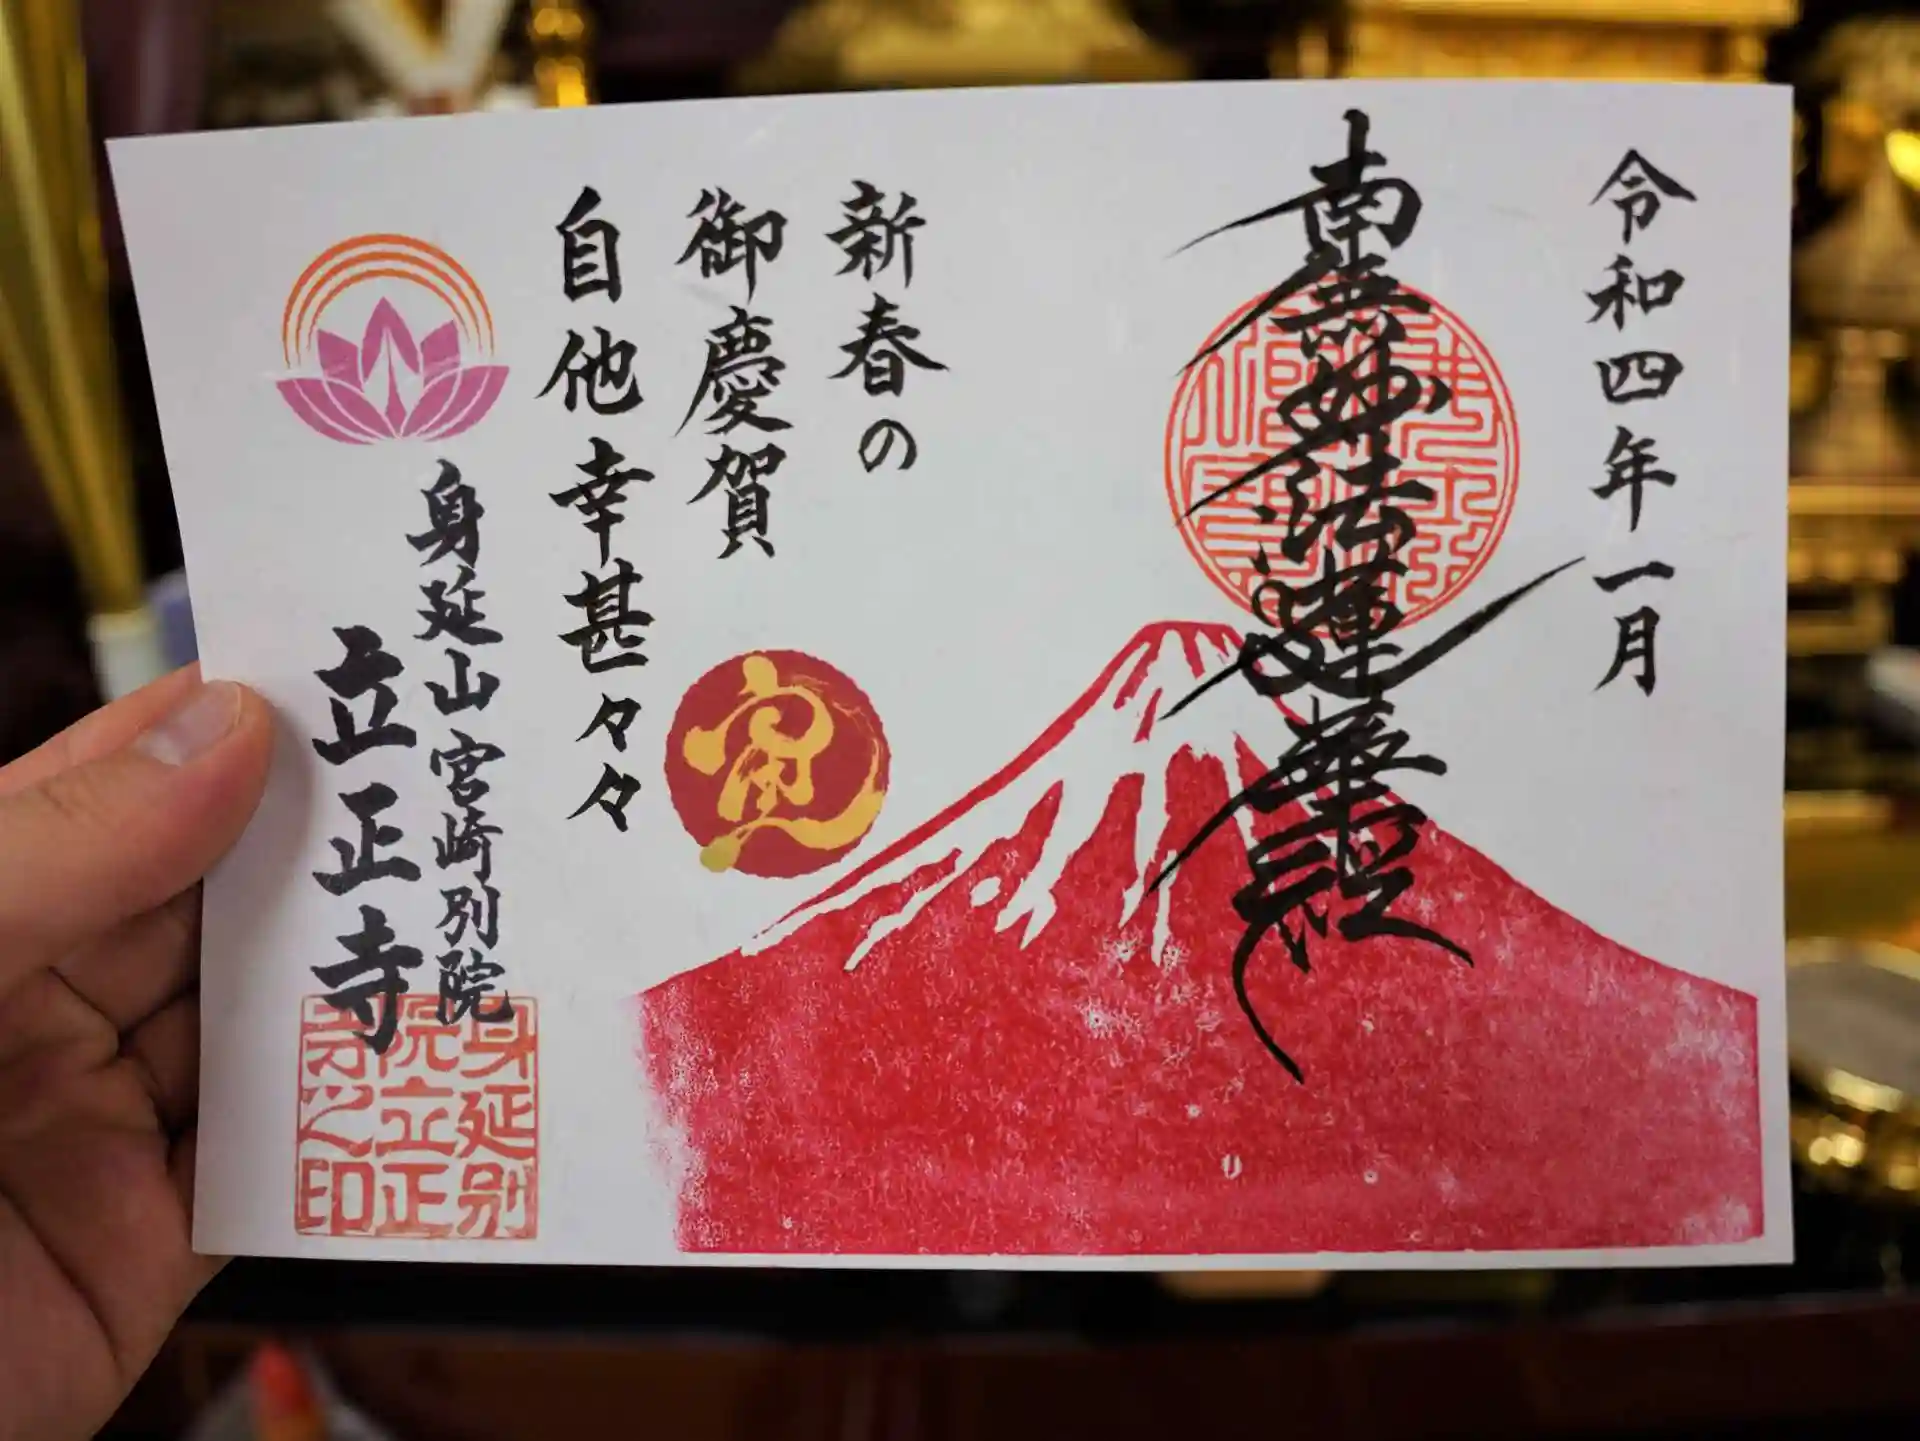 令和四年一月
南無妙法蓮華経
新春の
御慶賀
自他幸甚々々
寅
身延山宮崎別院
立正寺
身延別
院立正
寺之印